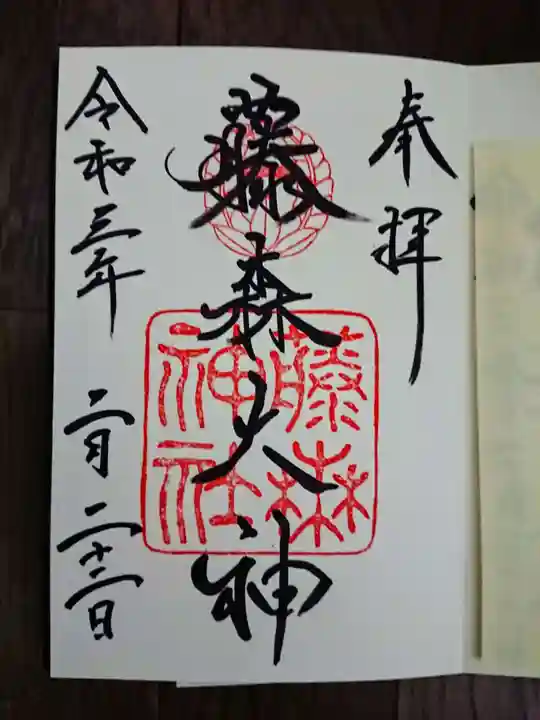 奉拝
藤森大神
藤森
神社
令和三年
二月二十二日